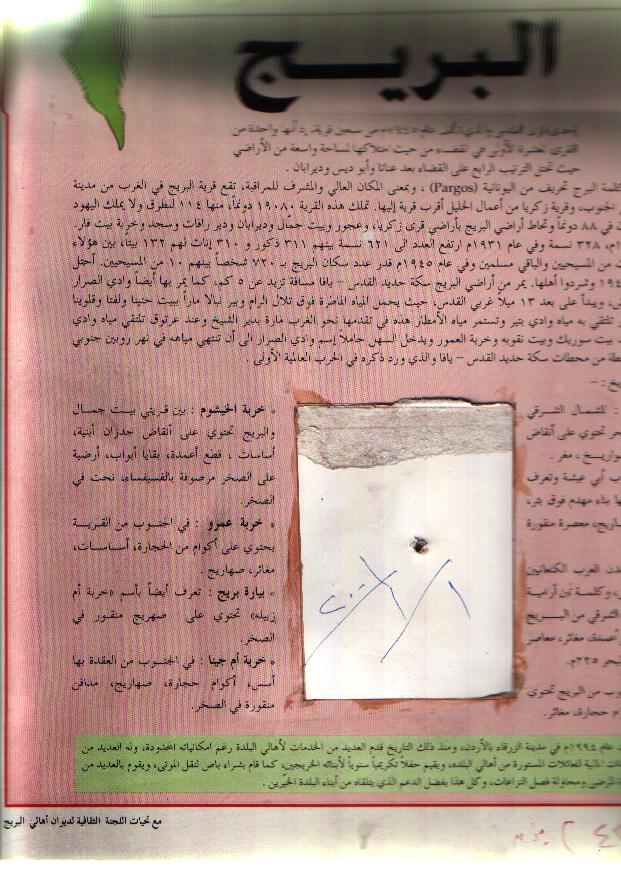 البريــج
إحدى قرى القدس والذي تألف عام ١٩٤٥م من سبعين قرية، يدلّها واحدة من
القرى في القضاء من حيث امتلاكها لمساحة واسعة من الأراضي
حيث تحتل الترتيب الرابع على القضاء بعد عناتا وأبو ديس وديرابان .
كلمة البرج تحريف من اليونانية (Pargos) ، وبمعنى المكان العالي والمشرف للمراقبة، تقع قرية البريج في الغرب من مدينة
الجنوب، وقرية زكريا من أعمال الخليل أقرب قرية إليها. تملك هذه القرية ١٩٠٨٠ دونماً، منها ١١٤ للطرق ولا يملك اليهود
في ٨٨ دونماً وتحاط أراضي البريج بأراضي قرى زكريا، وعجور وبيت جمّال وديرابان ودير رافات وسجد وخربة بيت فار.
٣٢٨ نسمة وفي عام ١٩٣١م ارتفع العدد الى ٦٢١ نسمة بينهم ٣١١ ذكور و ٣١٠ إناث لهم ١٣٢ بيتاً، بين هؤلاء
من المسيحيين والباقي مسلمين وفي عام ١٩٤٥م قدر عدد سكان البريج بـ ٧٢٠ شخصاً بينهم ١٠ من المسيحيين. أحتل
وتشردوا أهلها. يمر من أراضي البريج سكة حديد القدس – يافا مسافة تزيد عن ٥ كم، كما يمر بها أيضاً وادي الصرار
ويبدأ على بعد ١٣ ميلاً غربي القدس، حيث يحمل المياه الماطرة فوق تلال الرام وبير نبالا ماراً ببيت حنينا ولفتا وقلونيا
تلتقي به مياه وادي بتير وتستمر مياه الأمطار هذه في تقدمها نحو الغرب مارة بدير الشيخ وعند عرتوق تلتقي مياه وادي
بيت سوريك وبيت نقوبه وخربة العمور ويدخل السهل حاملاً إسم وادي الصرار الى أن تنتهي مياهه في نهر روبين جنوبي
من محطات سكة حديد القدس – يافا والذي ورد ذكره في الحرب العالمية الأولى .
: للشمال الشرقي
تحتوي على أنقاض
مغر .
أبي عيشة وتعرف
بناء مهدم فوق بئر،
معصرة منقورة
العرب الكنعانيين
وكلمة تين آرامية
الشرقي من البريج
مغائر، معاصر
٢٢٥م.
من البريج تحتوي
حجارة، مغائر.
* خربة الخيشوم : بين قريتي بيت جمال
والبريج تحتوي على أنقاض جدران أبنية،
أساسات ، قطع أعمدة، بقايا أبواب، أرضية
على الصخر مرصوفة بالفسيفساء، نحت في
الصخر.
* خربة عمرو : في الجنوب من القرية
يحتوي على أكوام من الحجارة، أساسات،
مغائر، صهاريج .
* بيارة بريج : تعرف أيضاً بأسم «خربة أم
زبيله» تحتوي على صهريج منقور في
الصخر.
* خربة أم جينا : في الجنوب من العقدة بها
أسس، أكوام حجارة، صهاريج، مدافن
منقورة في الصخر.
عام ١٩٩٤م في مدينة الزرقاء بالأردن، ومنذ ذلك التاريخ قدم العديد من الخدمات لأهالي البلدة رغم امكانياته المحدودة، وله العديد من
المالية للعائلات المستورة من أهالي البلده، ويقيم حفلاً تكريمياً سنوياً لأبنائه الخريجين، كما قام بشراء باص لنقل الموتى، ويقوم بالعديد من
المرضى ومحاولة فصل النزاعات، وكل هذا بفضل الدعم الذي يتلقاه من أبناء البلدة الخيّرين .
مع تحيات اللجنة الثقافية لديوان أهالي البريج